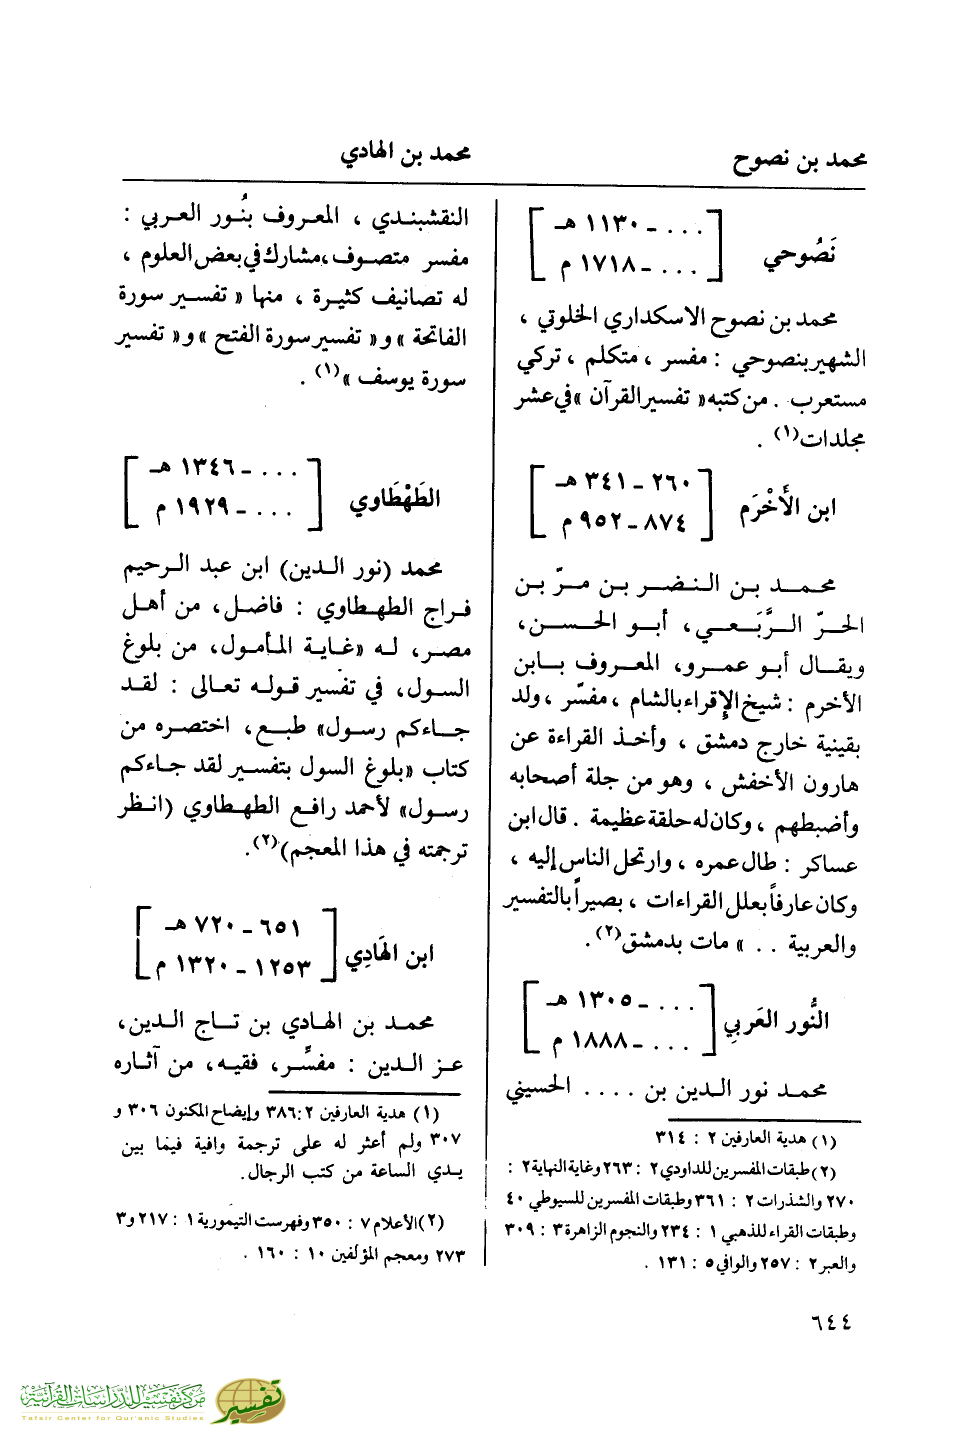 محمد بن نصوح
محمد بن الهادي
نَصُوحي
[ ... ـ ١١٣٠ هـ
... ـ ١٧١٨ م ]
محمد بن نصوح الاسكداري الخلوتي ،
الشهير بنصوحي : مفسر ، متكلم ، تركي
مستعرب . من كتبه « تفسير القرآن » في عشر
مجلدات(١) .
ابن الأَخْرَم
[ ٢٦٠ ـ ٣٤١ هـ
٨٧٤ ـ ٩٥٢ م ]
محمد بن النضر بن مرّ بن
الحرّ الرَّبَعي، أبو الحسن،
ويقال أبو عمرو، المعروف بابن
الأخرم : شيخ الإقراء بالشام ، مفسّر ، ولد
بقينية خارج دمشق ، وأخذ القراءة عن
هارون الأخفش ، وهو من جلة أصحابه
وأضبطهم ، وكان له حلقة عظيمة . قال ابن
عساكر : طال عمره ، وارتحل الناس إليه ،
وكان عارفاً بعلل القراءات ، بصيراً بالتفسير
والعربية . . » مات بدمشق(٢) .
النُّور العَربيِ
[ ... ـ ١٣٠٥ هـ
... ـ ١٨٨٨ م ]
محمد نور الدين بن .... الحسيني
(١) هدية العارفين ٢ : ٣١٤
(٢) طبقات المفسرين للداودي ٢ : ٢٦٣ وغاية النهاية ٢ :
٢٧٠ والشذرات ٢ : ٣٦١ وطبقات المفسرين للسيوطي ٤٠
وطبقات القراء للذهبي ١ : ٢٣٤ والنجوم الزاهرة ٣ : ٣٠٩
والعبر ٢ : ٢٥٧ والوافي ٥ : ١٣١ .
النقشبندي ، المعروف بنُور العربي :
مفسر متصوف، مشارك في بعض العلوم ،
له تصانيف كثيرة ، منها « تفسير سورة
الفاتحة » و « تفسير سورة الفتح » و « تفسير
سورة يوسف »(١) .
الطَهْطَاوي
[ ... ـ ١٣٤٦ هـ
... ـ ١٩٢٩ م ]
محمد (نور الدين) ابن عبد الرحيم
فراج الطهطاوي : فاضل، من أهل
مصر، له «غاية المأمول، من بلوغ
السول، في تفسير قوله تعالى : لقد
جاءكم رسول» طبع، اختصره من
كتاب «بلوغ السول بتفسير لقد جاءكم
رسول» لأحمد رافع الطهطاوي (انظر
ترجمته في هذا المعجم)(٢).
ابن الهَادِي
[ ٦٥١ ـ ٧٢٠ هـ
١٢٥٣ ـ ١٣٢٠ م ]
محمد بن الهادي بن تاج الدين،
عز الدين : مفسِّر، فقيه، من آثاره
(١) هدية العارفين ٢:٣٨٦ وإيضاح المكنون ٣٠٦ و
٣٠٧ ولم أعثر له على ترجمة وافية فيما بين
يدي الساعة من كتب الرجال.
(٢) الأعلام ٧ : ٣٥٠ وفهرست التيمورية ١ : ٢١٧ و ٣
٢٧٣ ومعجم المؤلفين ١٠ : ١٦٠ .
٦٤٤
مركز تفسير للدراسات القرآنية
Tafsir Center for Qur'anic Studies
تفسير